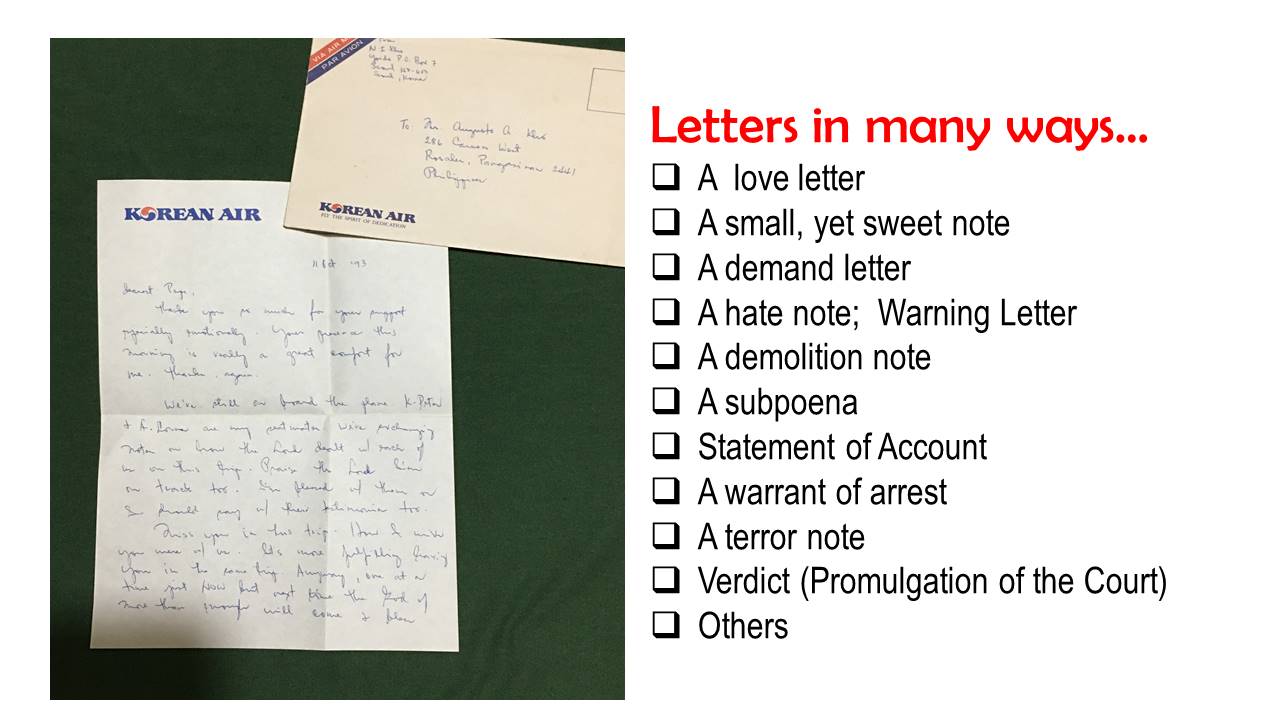 VIA AIR M
PAR AVION
From
P.O. Box 7
Seoul
Seoul, Korea
To: Mr. Augusto A
286 Carmen West
Rosales, Pangasinan 2441
Philippines
KOREAN AIR
FLY THE SPIRIT OF DEDICATION
KOREAN AIR
'93
Dearest
Thank you so much for your support
especially emotionally. Your presence this
morning is really a great comfort for
me. Thanks again.
We're still on board the plane. K. Peter
& A. are my seatmates. We're exchanging
notes on how the Lord dealt w/ each of
us on this trip. Praise the Lord
on track too. I'm w/ them or
I should say w/ their too.
Miss you in this trip. How I wish
you were w/ us. It's more fulfilling having
you in the same trip. Anyway, one at a
time just NOW but next time the God of
more than enough will come &
Letters in many ways...
❑ A love letter
❑ A small, yet sweet note
❑ A demand letter
❑ A hate note; Warning Letter
❑ A demolition note
❑ A subpoena
❑ Statement of Account
❑ A warrant of arrest
❑ A terror note
❑ Verdict (Promulgation of the Court)
❑ Others